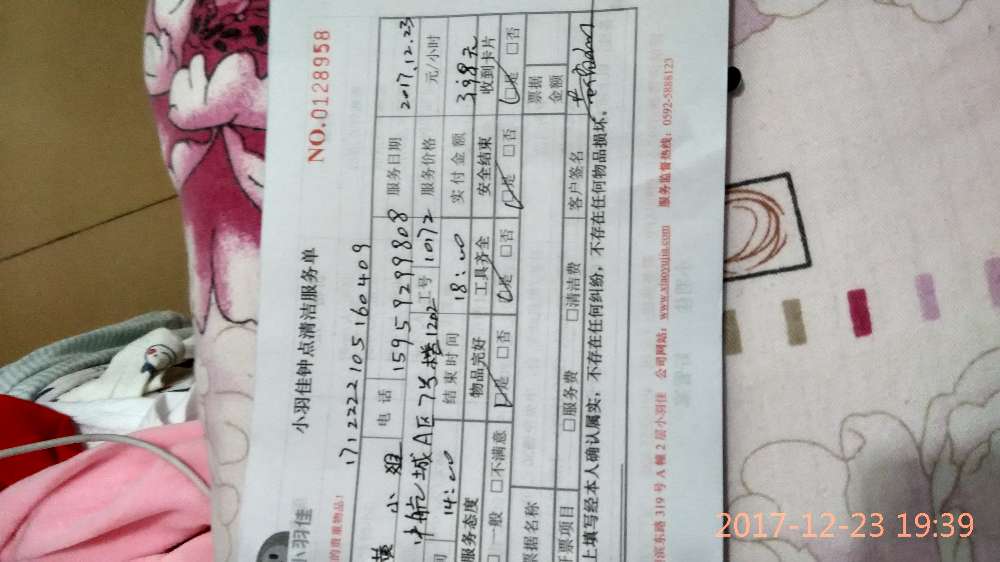 小羽佳
小羽佳钟点清洁服务单
NO.0128958
的贵重物品!
171222105160409
黄小姐 电话 15959299808 服务日期 2017.12.23
中航城A区7号楼1202 工号 10172 服务价格 元/小时
间 14:00 结束时间 18:00 实付金额 398元
服务态度 物品完好 工具齐全 安全结束 收到卡片
□一般 □不满意 □是 □否 □是 □否 □是 □否 □是 □否
票据名称 票据金额
开票项目 □服务费 □清洁费 客户签名
上填写经本人确认属实,不存在任何纠纷,不存在任何物品损坏。
滨东路319号A幢2层小羽佳 公司网站:www.xiaoyujia.com 服务监督热线:0592-5888123
2017-12-23 19:39